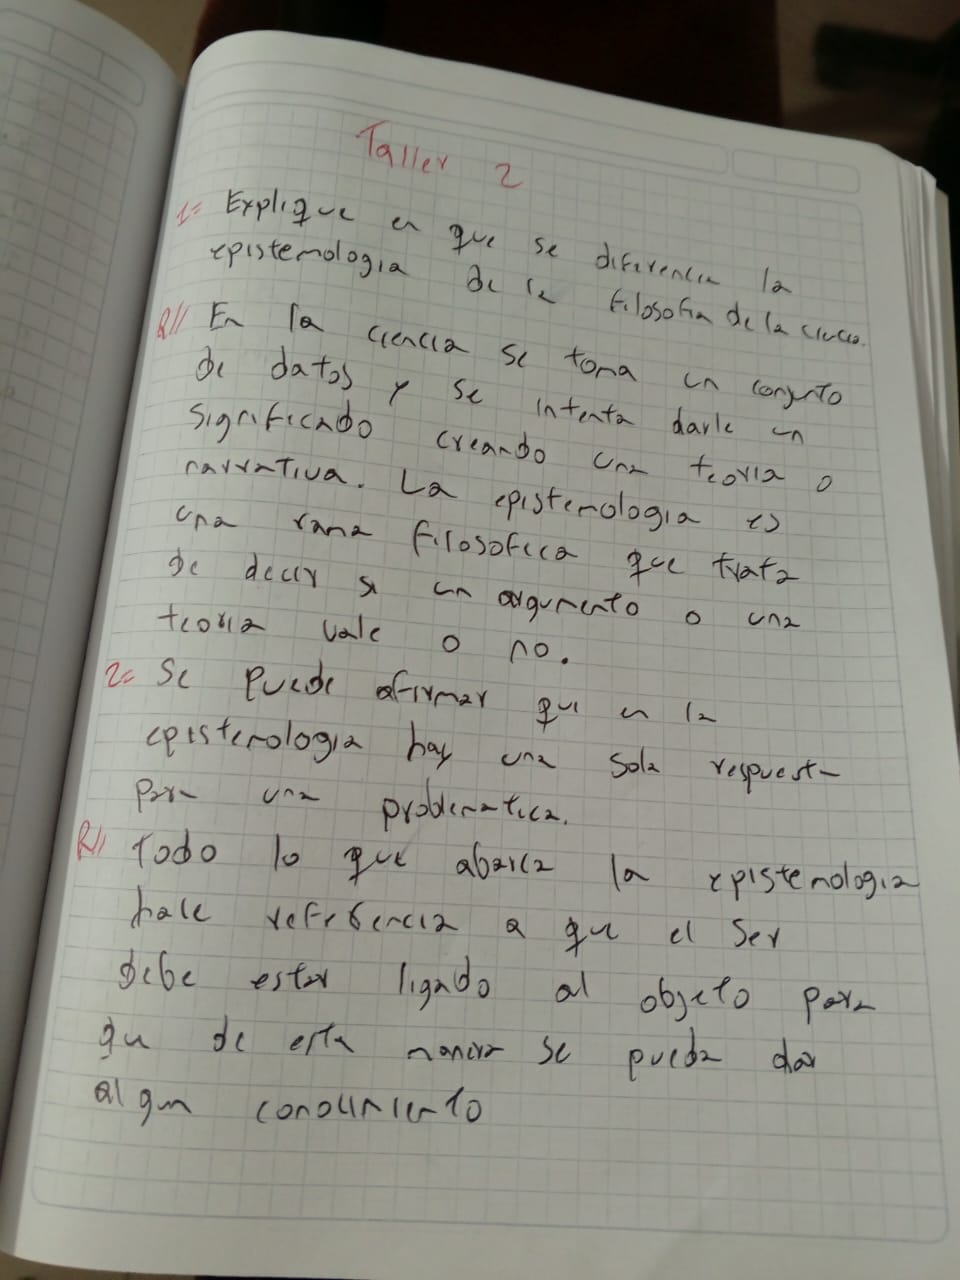 Taller 2
1= Explique en que se diferencia la
epistemologia de la filosofia de la ciencia.
R// En la ciencia se toma un conjunto
de datos y se intenta darle un
significado creando una teoria o
narrativa. La epistemologia es
una rama filosofica que trata
de decir si un argumento o una
teoria vale o no.
2= Se puede afirmar que en la
epistemologia hay una sola respuesta
para una problematica.
R// Todo lo que abarca la epistemologia
hace referencia a que el ser
debe estar ligado al objeto para
que de esta manera se pueda dar
algun conocimiento